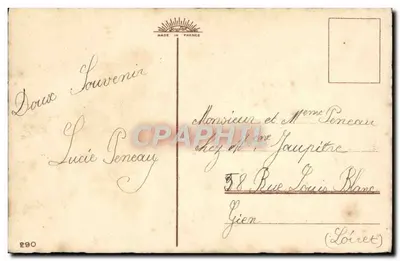 MADE IN FRANCE
Doux Souvenir
Lucie Peneau
Monsieur et Mme Peneau
Chez Mme Jaupitre
58 Rue Louis Blanc
Gien
(Loiret)
CPAPHIL
290